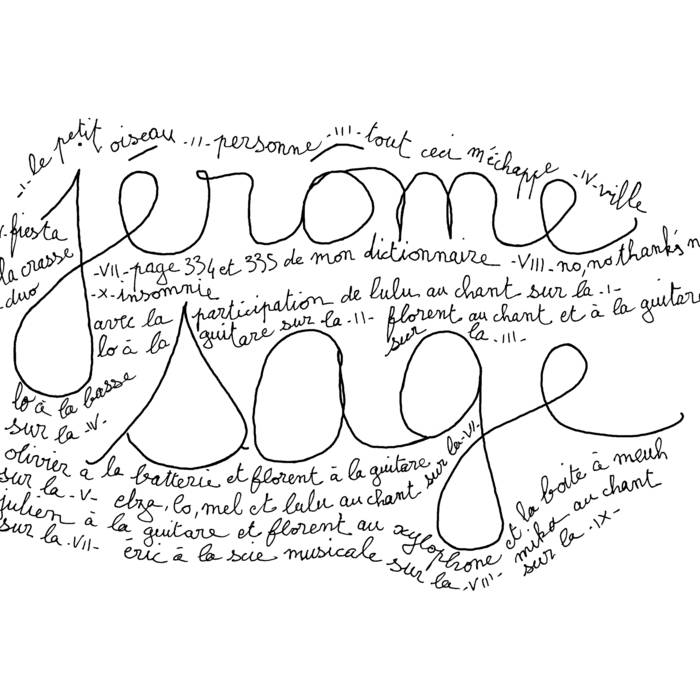 -I- le petit oiseau -II- personne -III- tout ceci m'échappe -IV- ville
jérôme
fiesta
la crasse
duo
-VII- page 334 et 335 de mon dictionnaire -VIII- no, no thank's n
-X- insomnie
avec la participation de lulu au chant sur la -I-
lo à la guitare sur la -II- florent au chant et à la guitare
sur la -III-
sage
lo à la basse
sur la -IV-
olivier à la batterie et florent à la guitare sur la -VII-
sur la -V- elza, lo, mel et lulu au chant
julien à la guitare et florent au xylophone et la boite à meuh
sur la -VII- éric à la scie musicale sur la -VIII- miko au chant
sur la -IX-